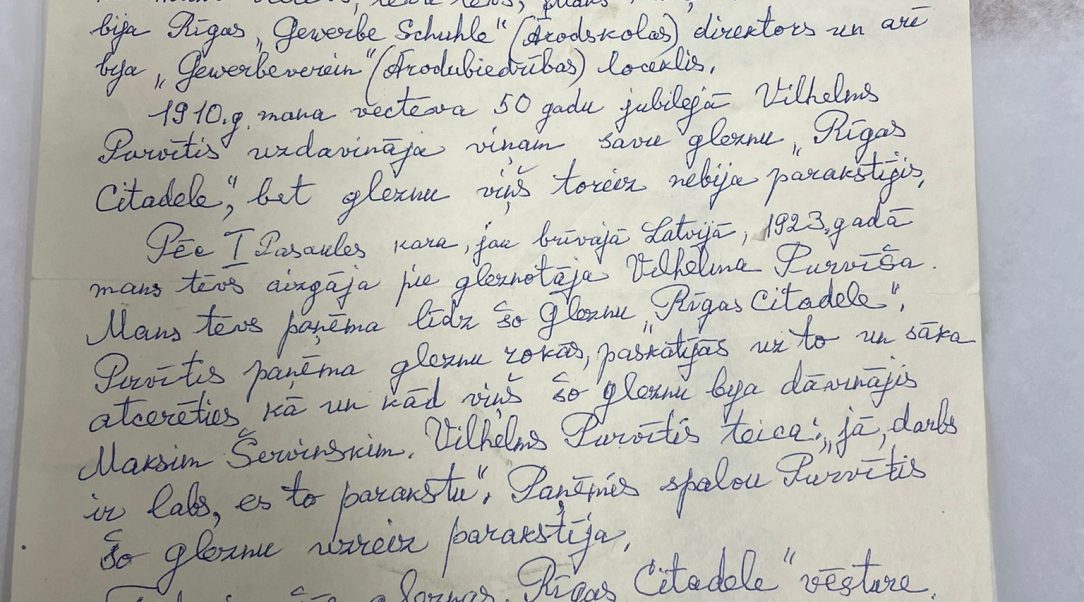 bija Rīgas „Gewerbe Schuhle“ (Arodskolas) direktors un arī
bija „Gewerbeverein“ (Arodubiedrības) loceklis.
1910.g. mana vectēva 50 gadu jubilejā Vilhelms
Purvītis uzdāvināja viņam savu gleznu „Rīgas
Citadele“, bet gleznu viņš toreiz nebija parakstījis.
Pēc I Pasaules kara, jau brīvajā Latvijā, 1923.gadā
mans tēvs aizgāja pie gleznotāja Vilhelma Purvīša.
Mans tēvs paņēma līdz šo gleznu „Rīgas Citadele“.
Purvītis paņēma gleznu rokās, paskatījās uz to un sāka
atcerēties kā un kād viņš šo gleznu bija dāvinājis
Maksim Šervinskim. Vilhelms Purvītis teica: „jā, darbs
ir labs, es to parakstu“. Paņēmis spalvu Purvītis
šo gleznu uzreiz parakstīja.
Rīgas Citadele“ vēsture.